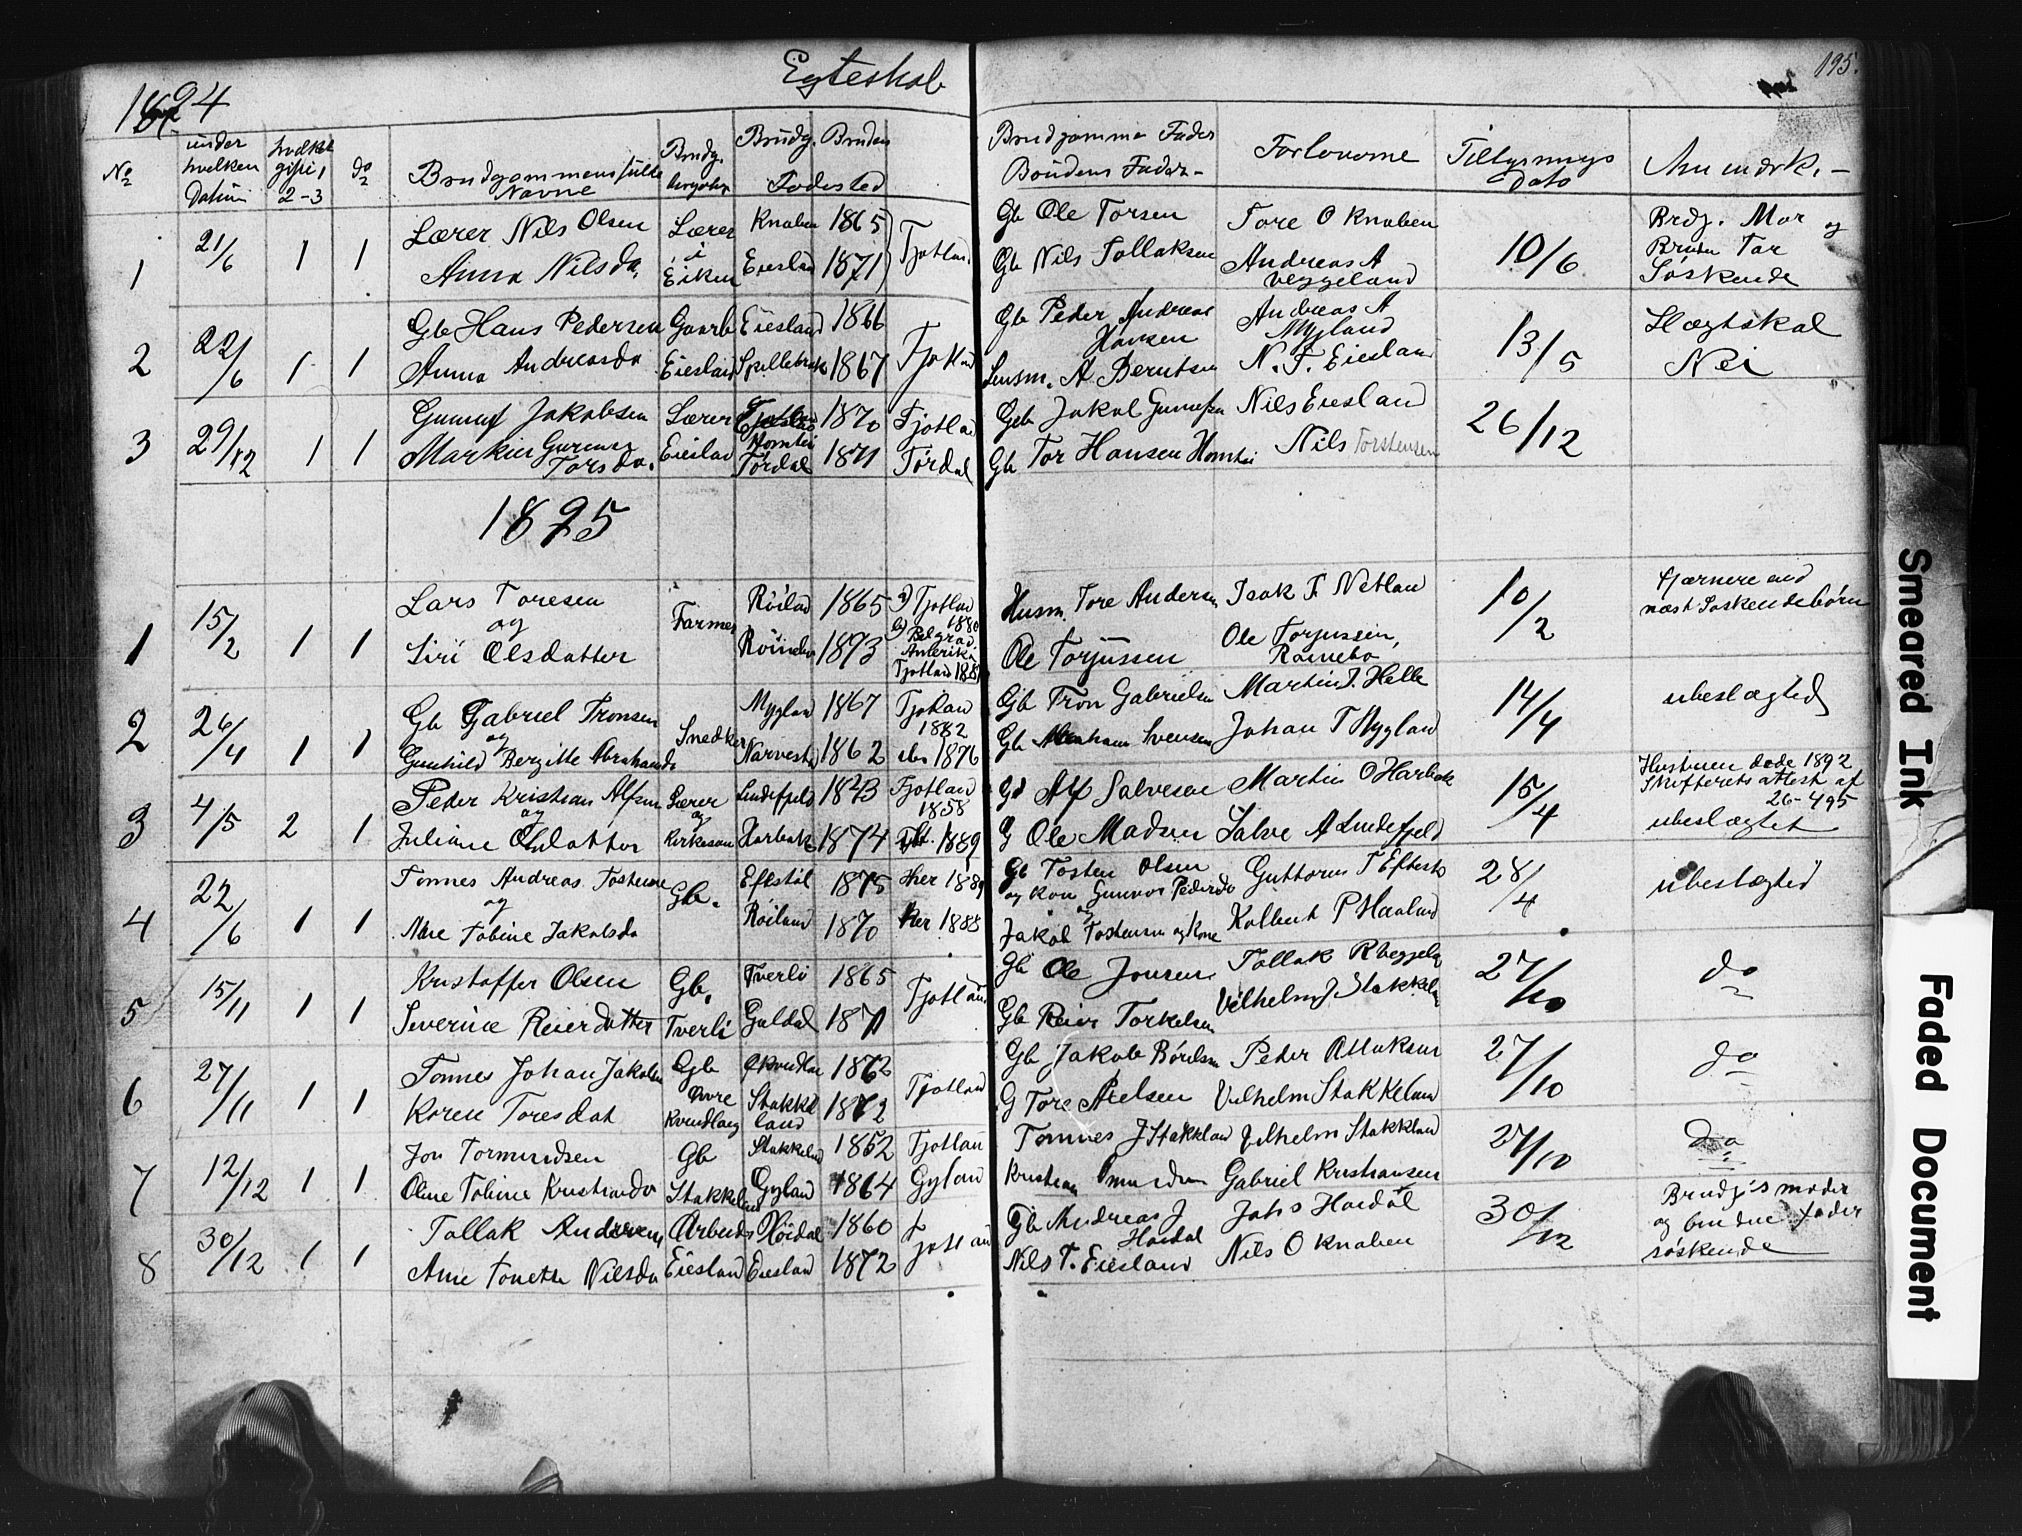 1894
Egteskab
195.
No
under hvilken Datum
hvilket gifte, 2-3
do
Brudgommens fulde Navne
Brudg.
Brudg. Bruden
Fødested
Brudgommens Fader
Brudens Fader
Forloverne
Tillysnings Dato
Anmerk.
1 21/6 1 1
Lærer Nils Olsen
Anna Nilsda.
Lærer i Eiken
Knaben 1865
Eiesland 1871
Fjotland
Gb Ole Torsen
Gb Nils Tollaksen
Tore O Knaben
Andreas A Veggeland
10/6
Brdg. Mor og
Bruden Far
Søskende
2 22/6 1 1
Gb Hans Pedersen
Anna Andreasda
Gaarb Eiesland
Eiesland 1866
1867
Fjotland
Gb Peder Andreas Hansen
Lensm. A Berntsen
Andreas A Mygland
N. T. Eiesland
13/5
Slegtskab
Nei
3 29/12 1 1
Gunuf Jakobsen
Torsda.
Lærer Eiesland
Homtei
1870
Tørdal 1871
Fjotland
Tørdal
Geb Jakob Gunufsen
Gb Tor Hansen Homtei
Nils Eiesland
Nils Torstensen
26/12
1895
1 15/2 1 1
Lars Toresen
og
Siri Olsdatter
Farmer
Røiland 1865
1873
a) Fjotland 1880
b) Belgrad Amerika
Fjotland
Husm. Tore Andersen
Ole Torjussen
Isak T Netland
Ole Torjussen,
10/2
fjærnere end
næst Søskendebørn
2 26/4 1 1
Gb Gabriel Tronsen
og
Gunhild Bergitte Abrahamsda
Snedker
Mygland 1867
Narvestad 1862
Fjotland 1882
1876
Gb Tron Gabrielsen
Gb Abraham Svensen
Martin T. Helle
Johan T Mygland
14/4
ubeslægted
3 4/5 2 1
Peder Kristian Alfsen
og
Juliane Olsdatter
Lærer og Kirkesan
Lindefjeld 1843
Harbak 1874
Fjotland 1858
1889
Gd Alf Salvesen
G Ole Madsen
Martin O Harbak
Salve A Lindefjeld
15/4
Hustruen døde 1892
Skifterets attest af
26-4 95
ubeslægtet
4 22/6 1 1
Tønnes Andreas Tostensen
og
Ane Tobine Jakobsda
Gb.
Eftestøl 1875
Røiland 1870
Her 1889
her 1888
Gb Tosten Olsen
og kone Gunvor Pedersda
og
Jakob Tostensen og kone
Guttorm T Eftestø
Kolbent P Haaland
28/4
ubeslægted
5 15/11 1 1
Kristoffer Olsen
Severine Reiersdatter
Gb. Tverli
Tverli 1865
Guldal 1871
Fjotland
Gb Ole Jonsen
Gb Reier Torkelsen
Tollak R Veggela
Vilhelm J. Stakkela
27/10
do
6 27/11 1 1
Tønnes Johan Jakobsen
Karen Toresdat
Gb Øvre Kvindlaug
1872
Stakkeland 1872
Fjotland
Gb Jakob Børulsen
G Tore Nielsen
Peder O Haksen
Vilhelm Stakkeland
27/10
do
7 12/12 1 1
Jon Tormundsen
Oline Tobine Kristiansda
Gb Stakkeland
Stakkeland 1852
Gyland 1864
Fjotland
Gyland
Tønnes J Stakkland
Kristian
Vilhelm Stakkland
Gabriel Kristiansen
27/10
do
8 30/12 1 1
Tollak Andersen
Ane Tonette Nilsda
Arbeids Eiesland
Høidal 1860
Eiesland 1872
Fjotland
Gb Andreas J Høidal
Nils T. Eiesland
Johs Høidal
Nils O Knaben
30/12
Brudg's moder
og brudne fader
søskende
Smeared Ink
Faded Document